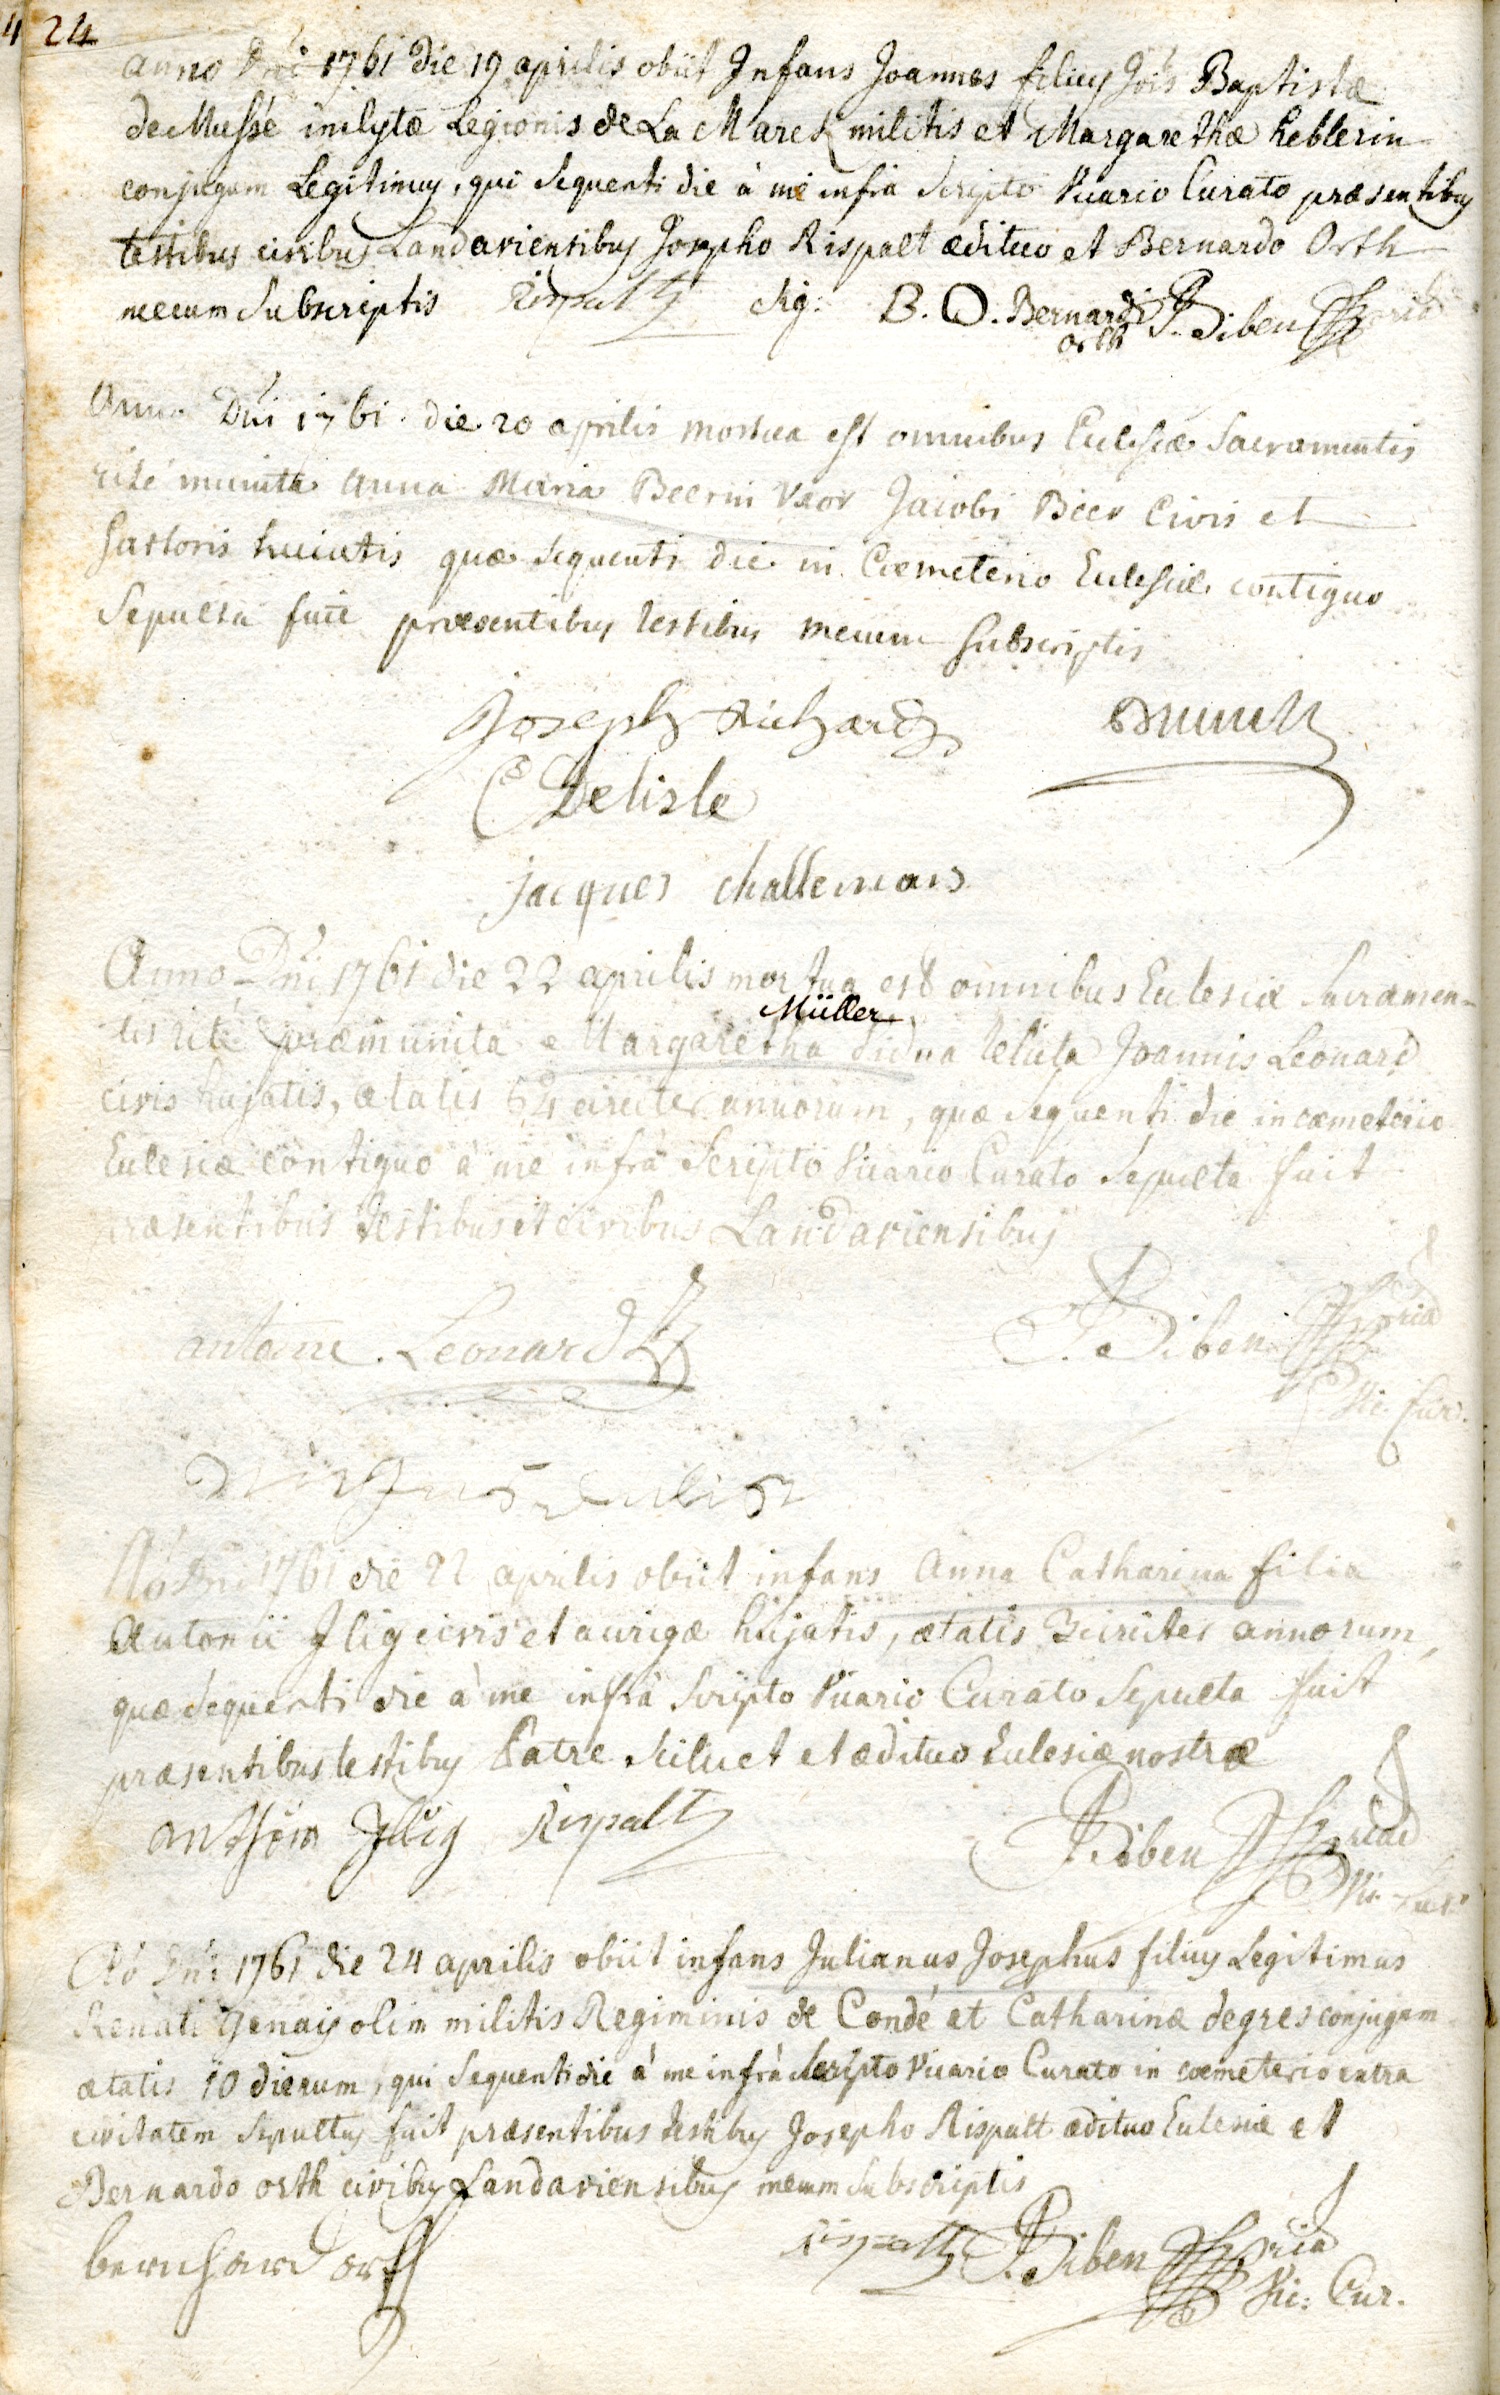 4 24
anno Dni 1761 die 19 aprilis obiit Infans Joannes filius Jois Baptistæ
de Mussé inclytæ Legionis de La Marck militis et Margarethæ heblerin
conjugum Legitimus, qui sequenti die à me infrà scripto Vicario Curato præsentibus
testibus civibus Landaviensibus Josepho Rispalt ædituo et Bernardo Orth
mecum subscriptis Rispalt sig: B. O. Bernardi P. Siben
orth
Anno Dni 1761. die 20 aprilis mortua est omnibus Ecclesiæ Sacramentis
rité munita anna Maria Beerin Uxor Jacobi Beer Civis et
sartoris huiatis quæ sequenti die in Cœmeterio Ecclesiæ contiguo
Sepulta fuit præsentibus testibus mecum subscriptis
Joseph Richard
Delisle
jacques challemois
Anno Dni 1761 die 22 aprilis mortua est omnibus Ecclesiæ Sacramen-
Müller
tis rité præmunita Margaretha vidua relicta Joannis Leonard
civis hujatis, ætatis 64 circiter annorum, quæ sequenti die in cæmeterio
Ecclesiæ contiguo à me infrà scripto Vicario Curato Sepulta fuit
præsentibus testibus et civibus Landaviensibus
antoine. Leonard P. Siben
Vic. Cur.
Aò Dni 1761 die 22 aprilis obiit infans Anna Catharina filia
Antonii Jlig civis et aurigæ hujatis, ætatis 3 circiter annorum,
quæ sequenti die à me infrà scripto Vicario Curato Sepulta fuit
præsentibus testibus Patre scilicet et ædituo Ecclesiæ nostræ
anthoin Jllig Rispalt P. Siben
Vic. Cur.
Aò Dni 1761 die 24 aprilis obiit infans Julianus Josephus filius Legitimus
Renati Genais olim militis Regiminis de Condé et Catharinæ degres conjugum
ætatis 10 dierum, qui sequenti die à me infrà scripto Vicario Curato in cœmeterio extra
civitatem Sepultus fuit præsentibus testibus Josepho Rispalt ædituo Ecclesiæ et
Bernardo orth civibus Landaviensibus mecum subscriptis
bernhard ort rispalt P. Siben
Vic: Cur.